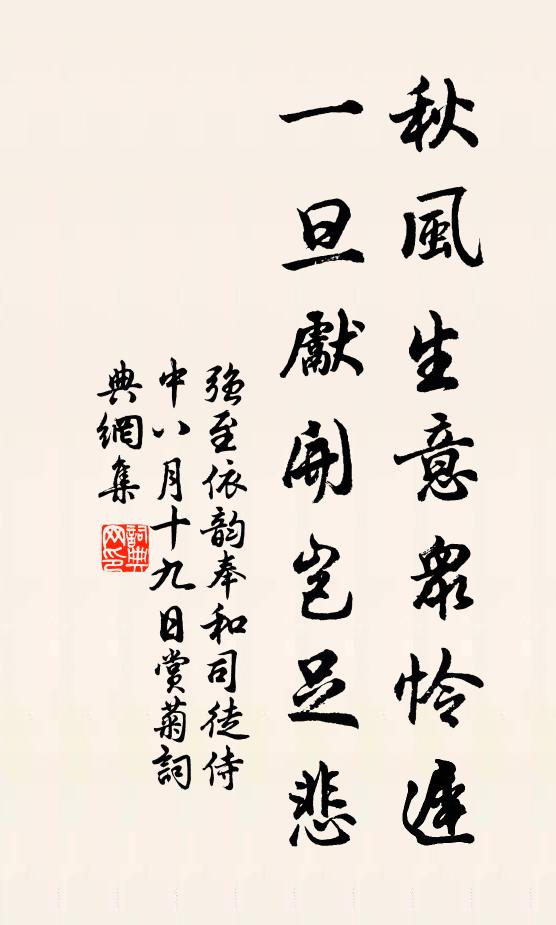 秋風生意衆怜遲
一旦獻開岂足悲
強至依韵奉和司徒侍
中八月十九日賞菊詞
典網集
詞典
网印